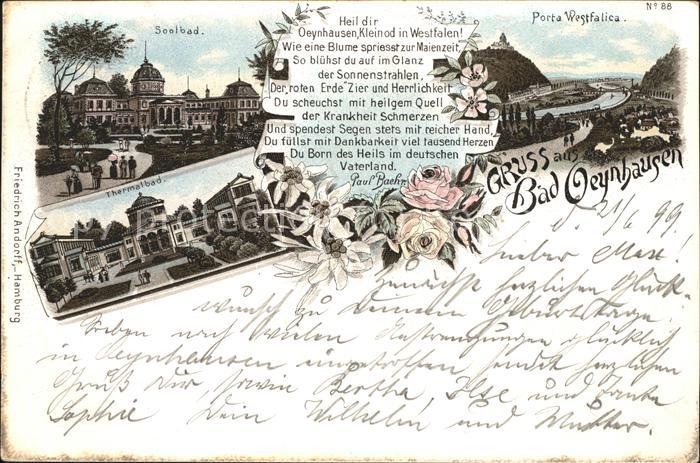 Nº 88
Soolbad.
Heil dir
Oeynhausen, Kleinod in Westfalen!
Wie eine Blume spriesst zur Maienzeit,
So blühst du auf im Glanz
der Sonnenstrahlen,
Der „roten Erde" Zier und Herrlichkeit.
Du scheuchst mit heilgem Quell
der Krankheit Schmerzen
Und spendest Segen stets mit reicher Hand,
Du füllst mit Dankbarkeit viel tausend Herzen
Du Born des Heils im deutschen
Vaterland.
Paul Baehr
Porta Westfalica.
Thermalbad.
GRUSS aus
Bad Oeynhausen
Friedrich Andorff, Hamburg
d. 21/6 99.
Lieber Max!
Zunächst herzlichen Glück-
wunsch zu Deinem Geburtstage.
Soeben nach vielen Anstrengungen glücklich
in Oeynhausen eingetroffen sendet herzlichen
Gruß Dir, sowie Bertha, Ilse und Tante
Sophie Dein Wilhelm und Mutter.